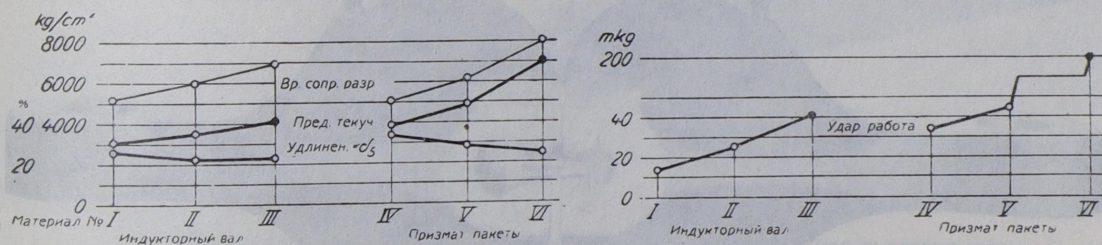 kg/cm²
8000
6000
%
40 4000
20
0
Вр. сопр. разр
Пред. текуч
Удлинен.
Материал № I II III IV V VI
Индукторный вал
Призмат пакеты
mkg
200
40
20
0
Удар работа
I II III IV V VI
Индукторный вал
Призмат пакеты